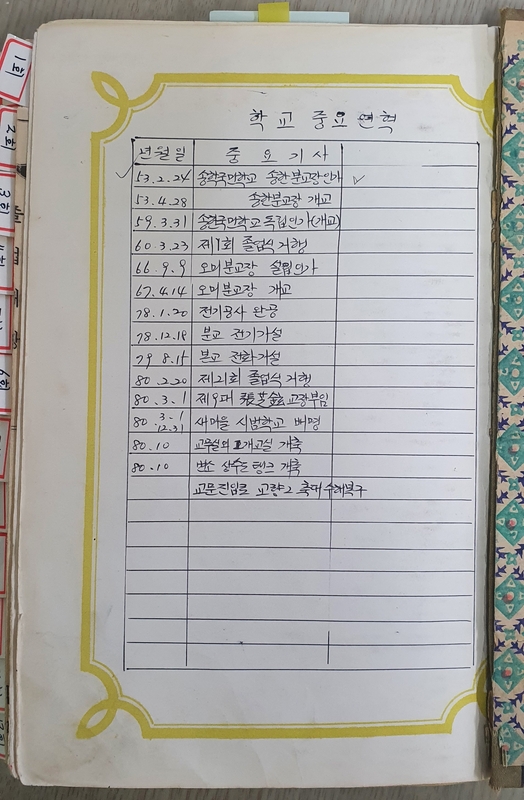 학교 중요 연혁
년월일 중요기사
53.2.24 송학국민학교 송한분교장인가
53.4.28 송한분교장 개교
59.3.31 송한국민학교 독립인가(개교)
60.3.23 제1회 졸업식 거행
66.9.9 오미분교장 설립인가
67.4.14 오미분교장 개교
78.1.20 전기공사 완공
78.12.18 분교 전기가설
79 8.15 본교 전화가설
80.2.20 제21회 졸업식 거행
80.3.1 제9대 교장부임
80 3.1 12.31 새마을 시범학교
80.10 교무실외 개교실 개축
80.10 상수도 탱크 개축
교문진입로 교량2 축대 수해복구
1회
2회
3회
6회